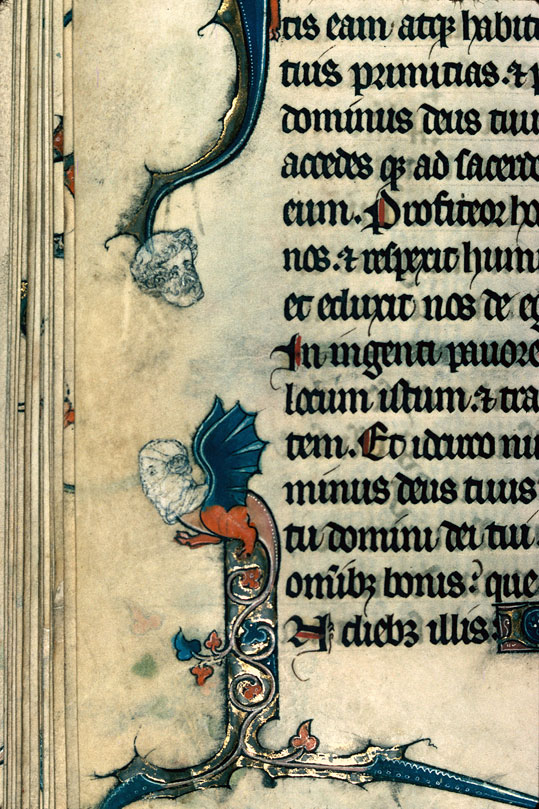 tis eam atqꝫ habit
tius primitias. ⁊ p
dominus deus tuu
accedes qꝫ ad sacerdo
eum. Profiteor ho
nos. ⁊ respexit humi
et eduxit nos de eg
In ingenti pauore
locum istum. ⁊ tra
tem. Et idcirco nu
minus deus tuus
tu domini dei tui.
omībꝫ bonis? que
A diebꝫ illis: